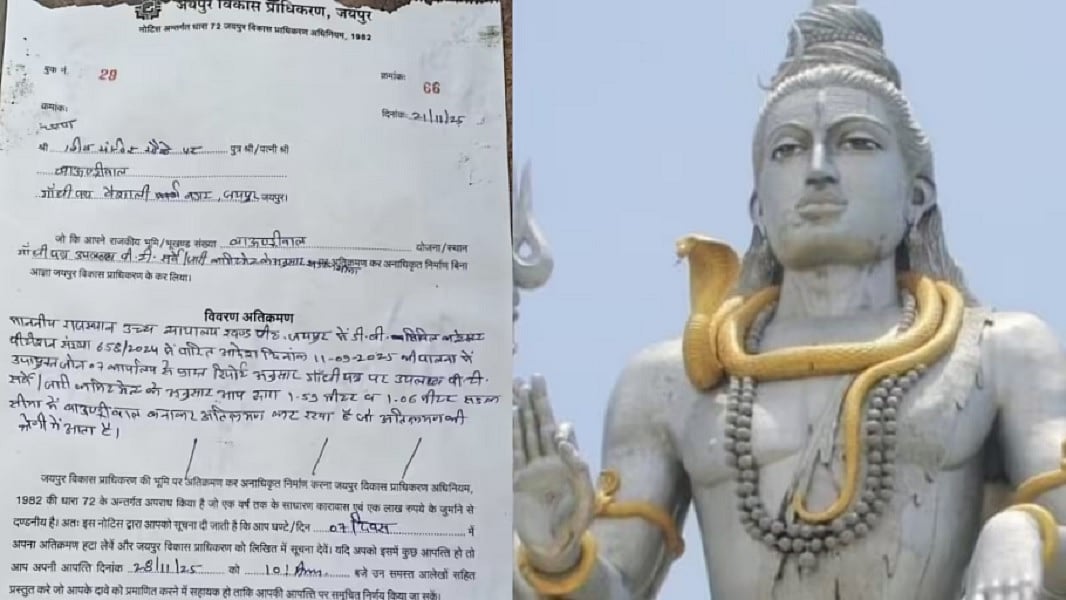 जयपुर विकास प्राधिकरण, जयपुर
नोटिस अन्तर्गत धारा 72 जयपुर विकास प्राधिकरण अधिनियम, 1982
बुक नं. 29
क्रमांक: 66
क्रमांक:
दिनांक: 21/11/25
श्री शिव मंदिर पुत्र श्री/पत्नी श्री
बाऊण्ड्रीवाल
गाँधी पथ वैशाली नगर, जयपुर जयपुर।
जो कि आपने राजकीय भूमि/भूखण्ड संख्या बाऊण्ड्रीवाल योजना/स्थान
गाँधी पथ उपलब्ध पी.टी. सर्वे/ के अनुसार अतिक्रमण कर अनाधिकृत निर्माण बिना
आज्ञा जयपुर विकास प्राधिकरण के कर लिया।
विवरण अतिक्रमण
माननीय राजस्थान उच्च न्यायालय खण्ड पीठ जयपुर में डी.बी. सिविल
पीटीशन संख्या 658/2024 में पारित आदेश दिनांक 11-09-2025 की पालना में
उपायुक्त जोन 07 कार्यालय से प्राप्त रिपोर्ट अनुसार गाँधी पथ पर उपलब्ध पी.टी.
सर्वे/ के अनुसार आप द्वारा 1.59 मीटर व 1.06 मीटर सड़क
सीमा में बाऊण्ड्रीवाल बनाकर अतिक्रमण कर रखा है जो अतिक्रमण की
श्रेणी में आता है।
जयपुर विकास प्राधिकरण की भूमि पर अतिक्रमण कर अनाधिकृत निर्माण करना जयपुर विकास प्राधिकरण अधिनियम,
1982 की धारा 72 के अन्तर्गत अपराध किया है जो एक वर्ष तक के साधारण कारावास एवं एक लाख रुपये के जुर्माने से
दण्डनीय है। अतः इस नोटिस द्वारा आपको सूचना दी जाती है कि आप घण्टे/दिन 07 दिवस में
अपना अतिक्रमण हटा लेवें और जयपुर विकास प्राधिकरण को लिखित में सूचना देवें। यदि अपको इसमें कुछ आपत्ति हो तो
आप अपनी आपत्ति दिनांक 28/11/25 को 10 बजे उन समस्त आलेखों सहित
प्रस्तुत करे जो आपके दावे को प्रमाणित करने में सहायक हो ताकि आपकी आपत्ति पर समुचित निर्णय किया जा सकें।